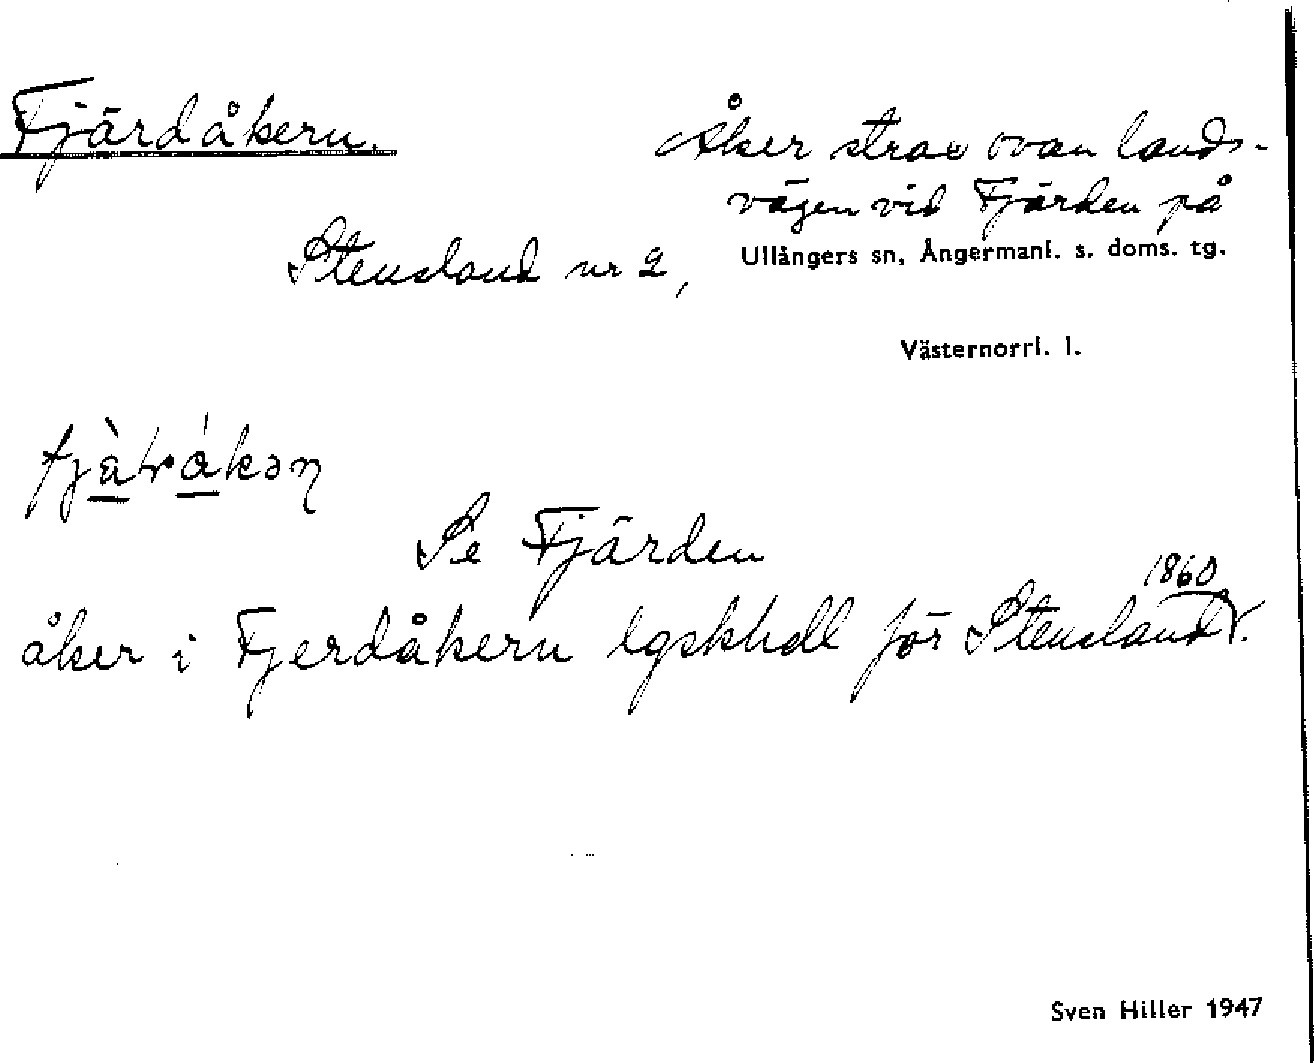 Fjärdåkern.
Åker strax ovan lands-
vägen vid Fjärden på
Stensland nr 2,
Ullångers sn, Ångermanl. s. doms. tg.
Västernorrl. l.
Se Fjärden
1860
åker i Fjerdåkern lgskhdl för Stensland
Sven Hiller 1947